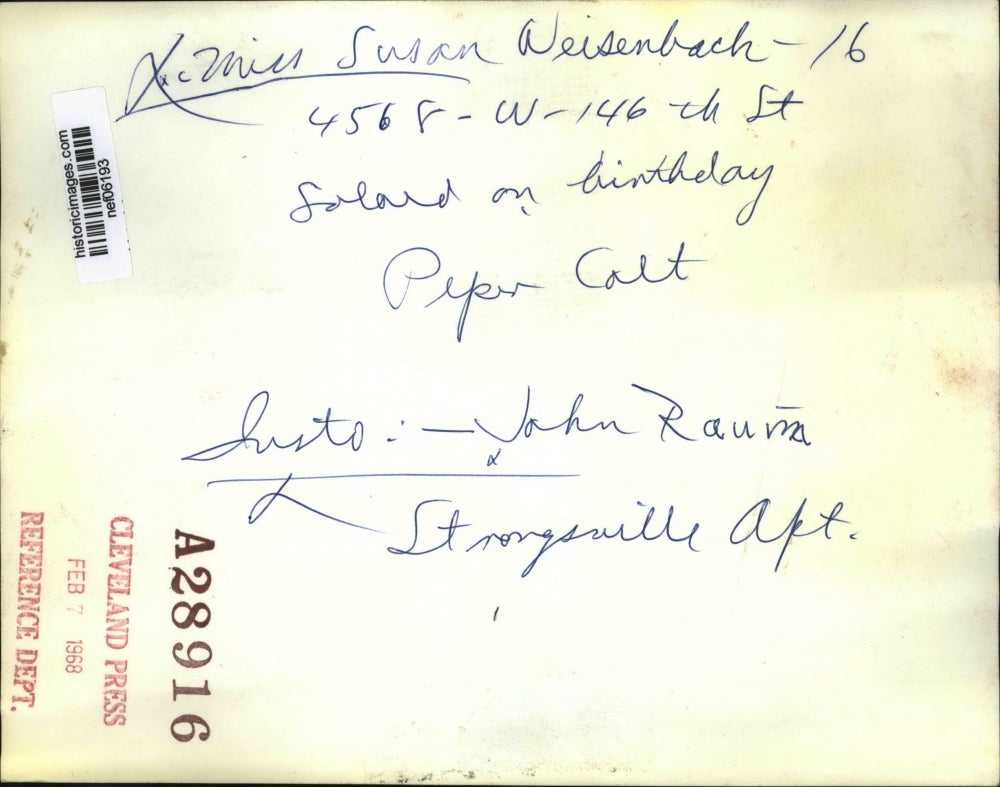 Miss Susan Weisenbach - 16
4568 - W - 146 th St
Soloed on birthday
Peper Colt
Insto : - John
Strongsville Apt.
historicimages.com
nef06193
A28916
CLEVELAND PRESS
FEB 7 1968
REFERENCE DEPT.